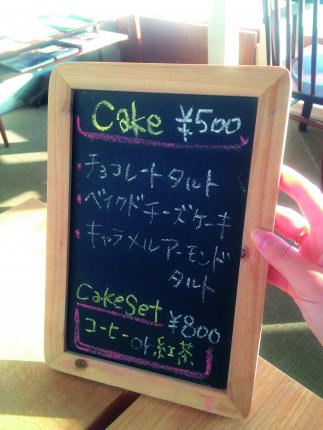 Cake ¥500
・チョコレートタルト
・ベイクドチーズケーキ
・キャラメルアーモンド
タルト
CakeSet ¥800
コーヒー or 紅茶